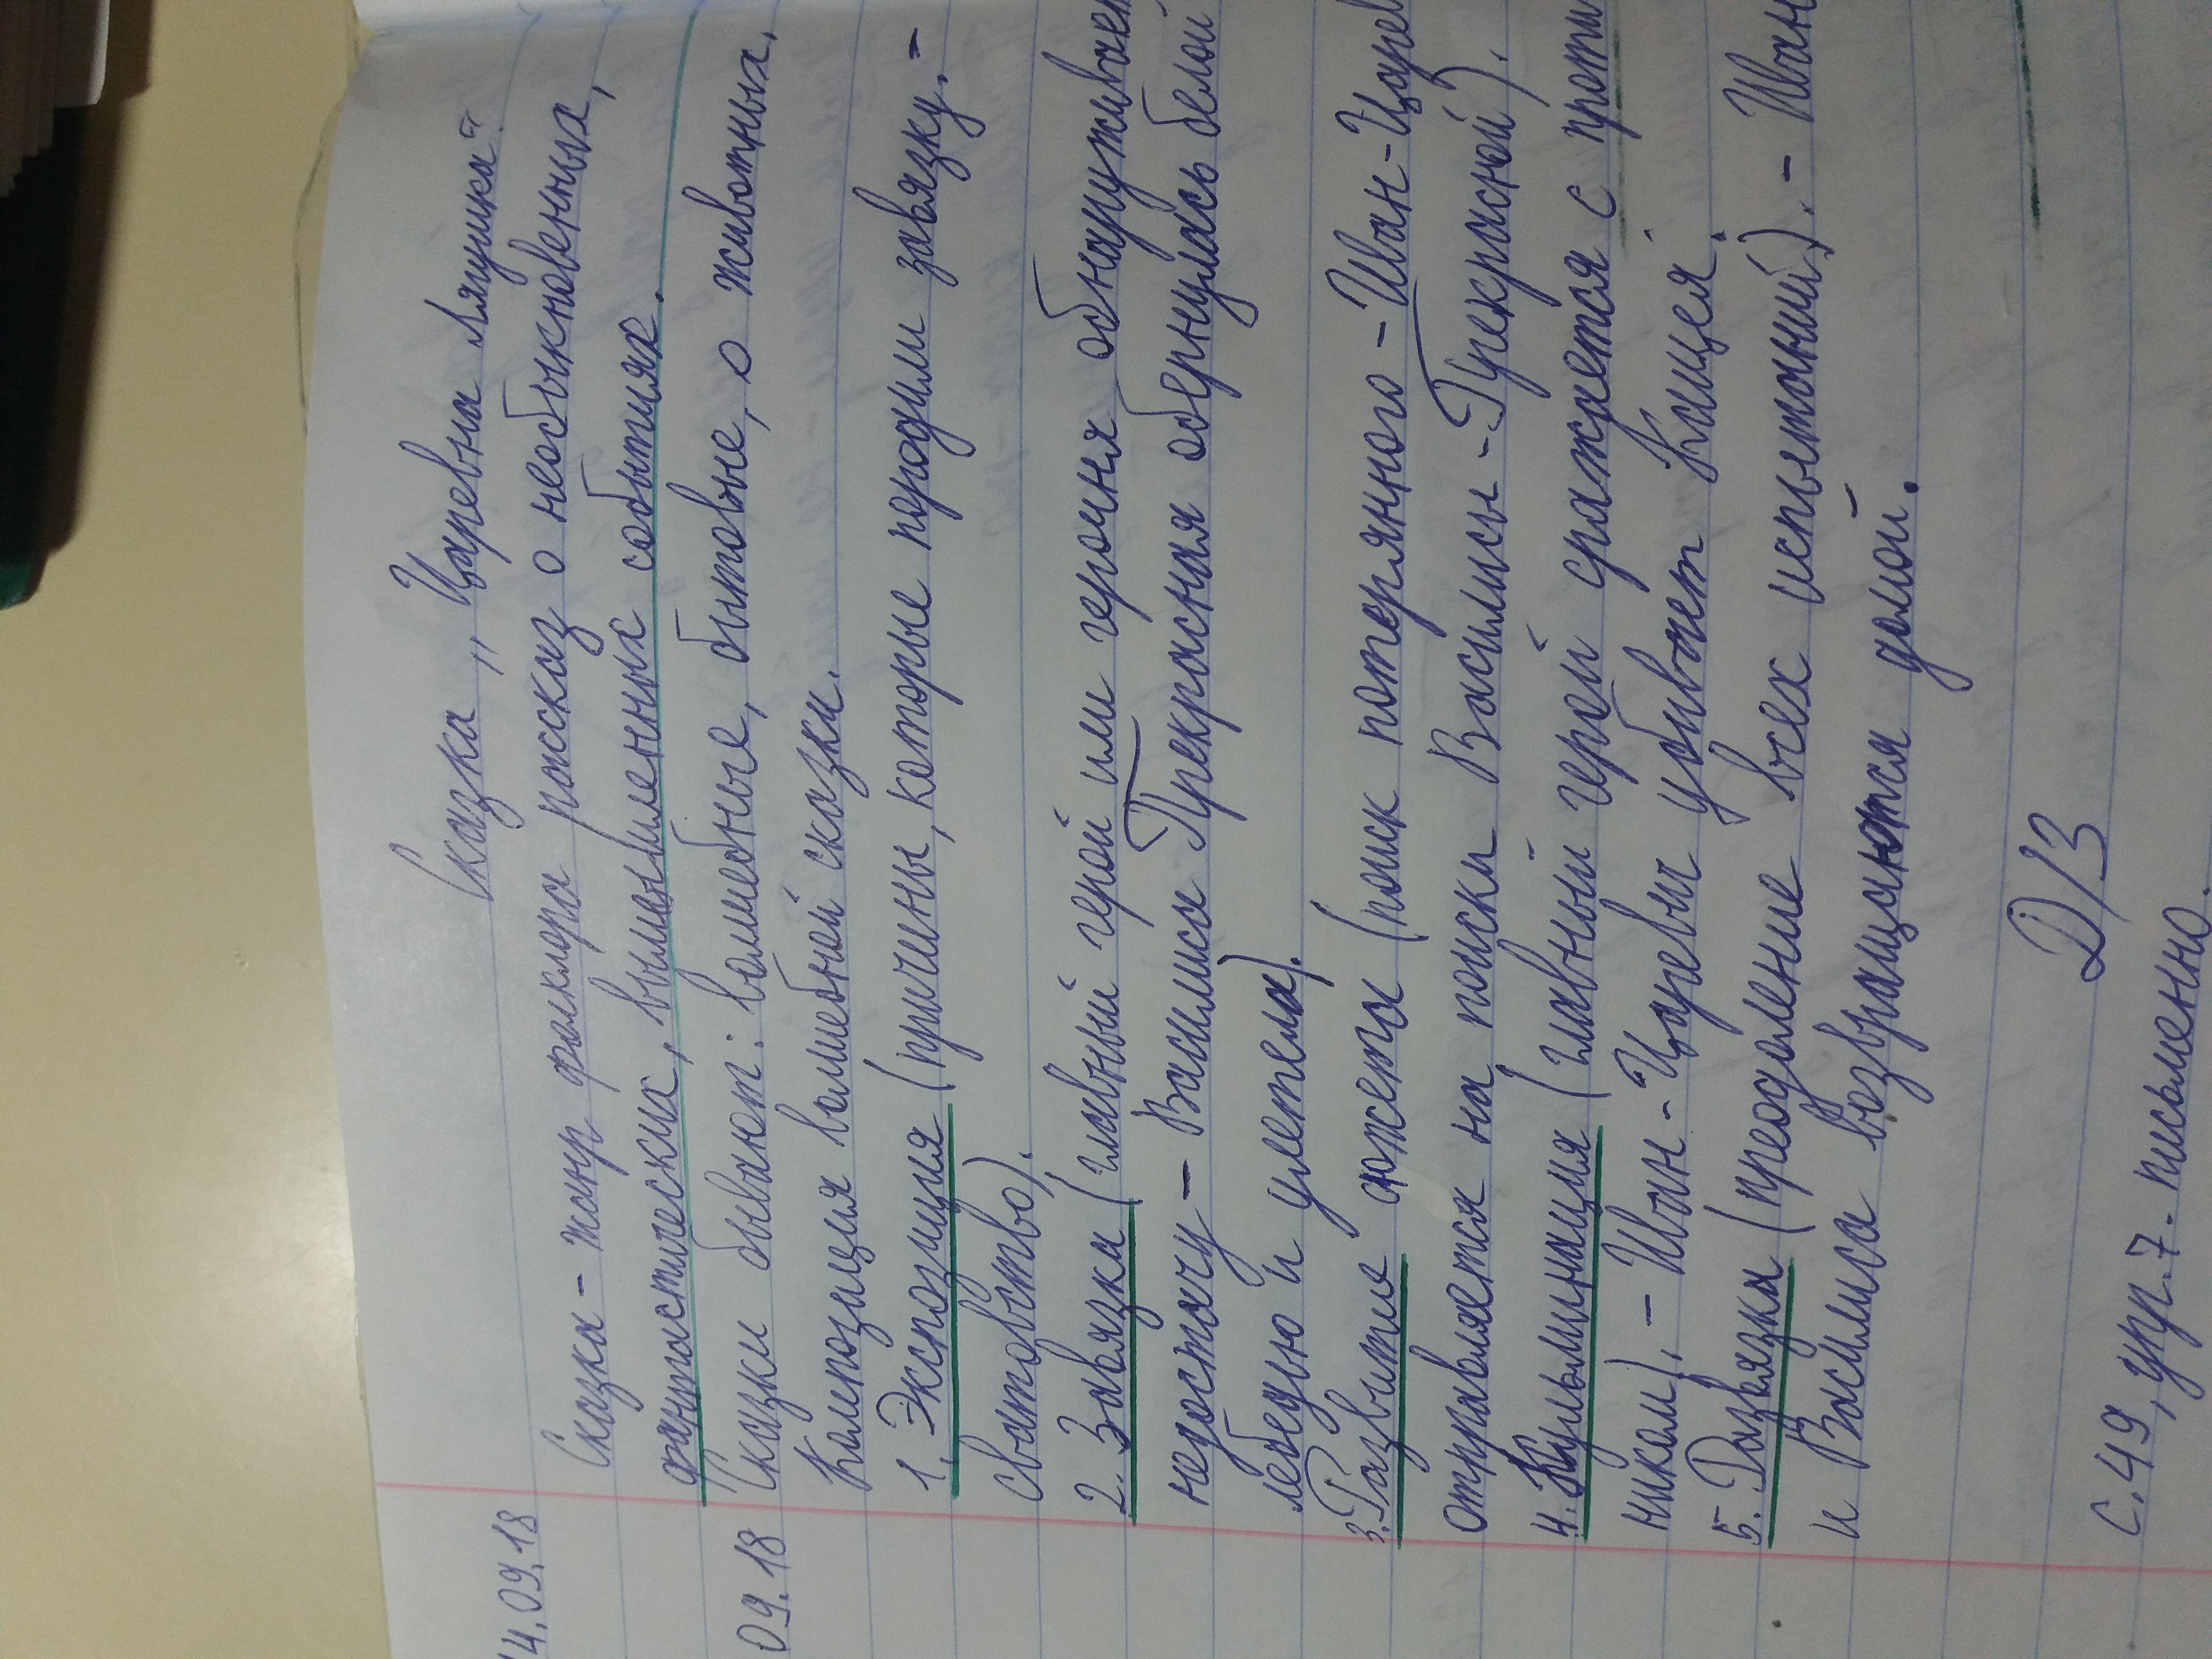 Сказка „Царевна Лягушка“.
14.09.18
Сказка - жанр фольклора рассказ о необыкновенных,
фантастических, вымышленных событиях.
09.18 Сказки бывают: волшебные, бытовые, о животных.
Композиция волшебной сказки.
1. Экспозиция (причины, которые породили завязку. -
сватовство).
2. Завязка (главный герой или героиня обнаруживает
недостачу - Василиса Прекрасная обернулась белой
лебедью и улетела).
3. Развитие сюжета (поиск потерянного - Иван-Царев
отправляется на поиски Василисы - Прекрасной).
4. Кульминация (главный герой сражается с проти
ником). - Иван-Царевич убивает Кощея.
5. Развязка (преодоление всех испытаний). - Иван
и Василиса возвращаются домой.
Д/З
с.49, упр.7. письменно.